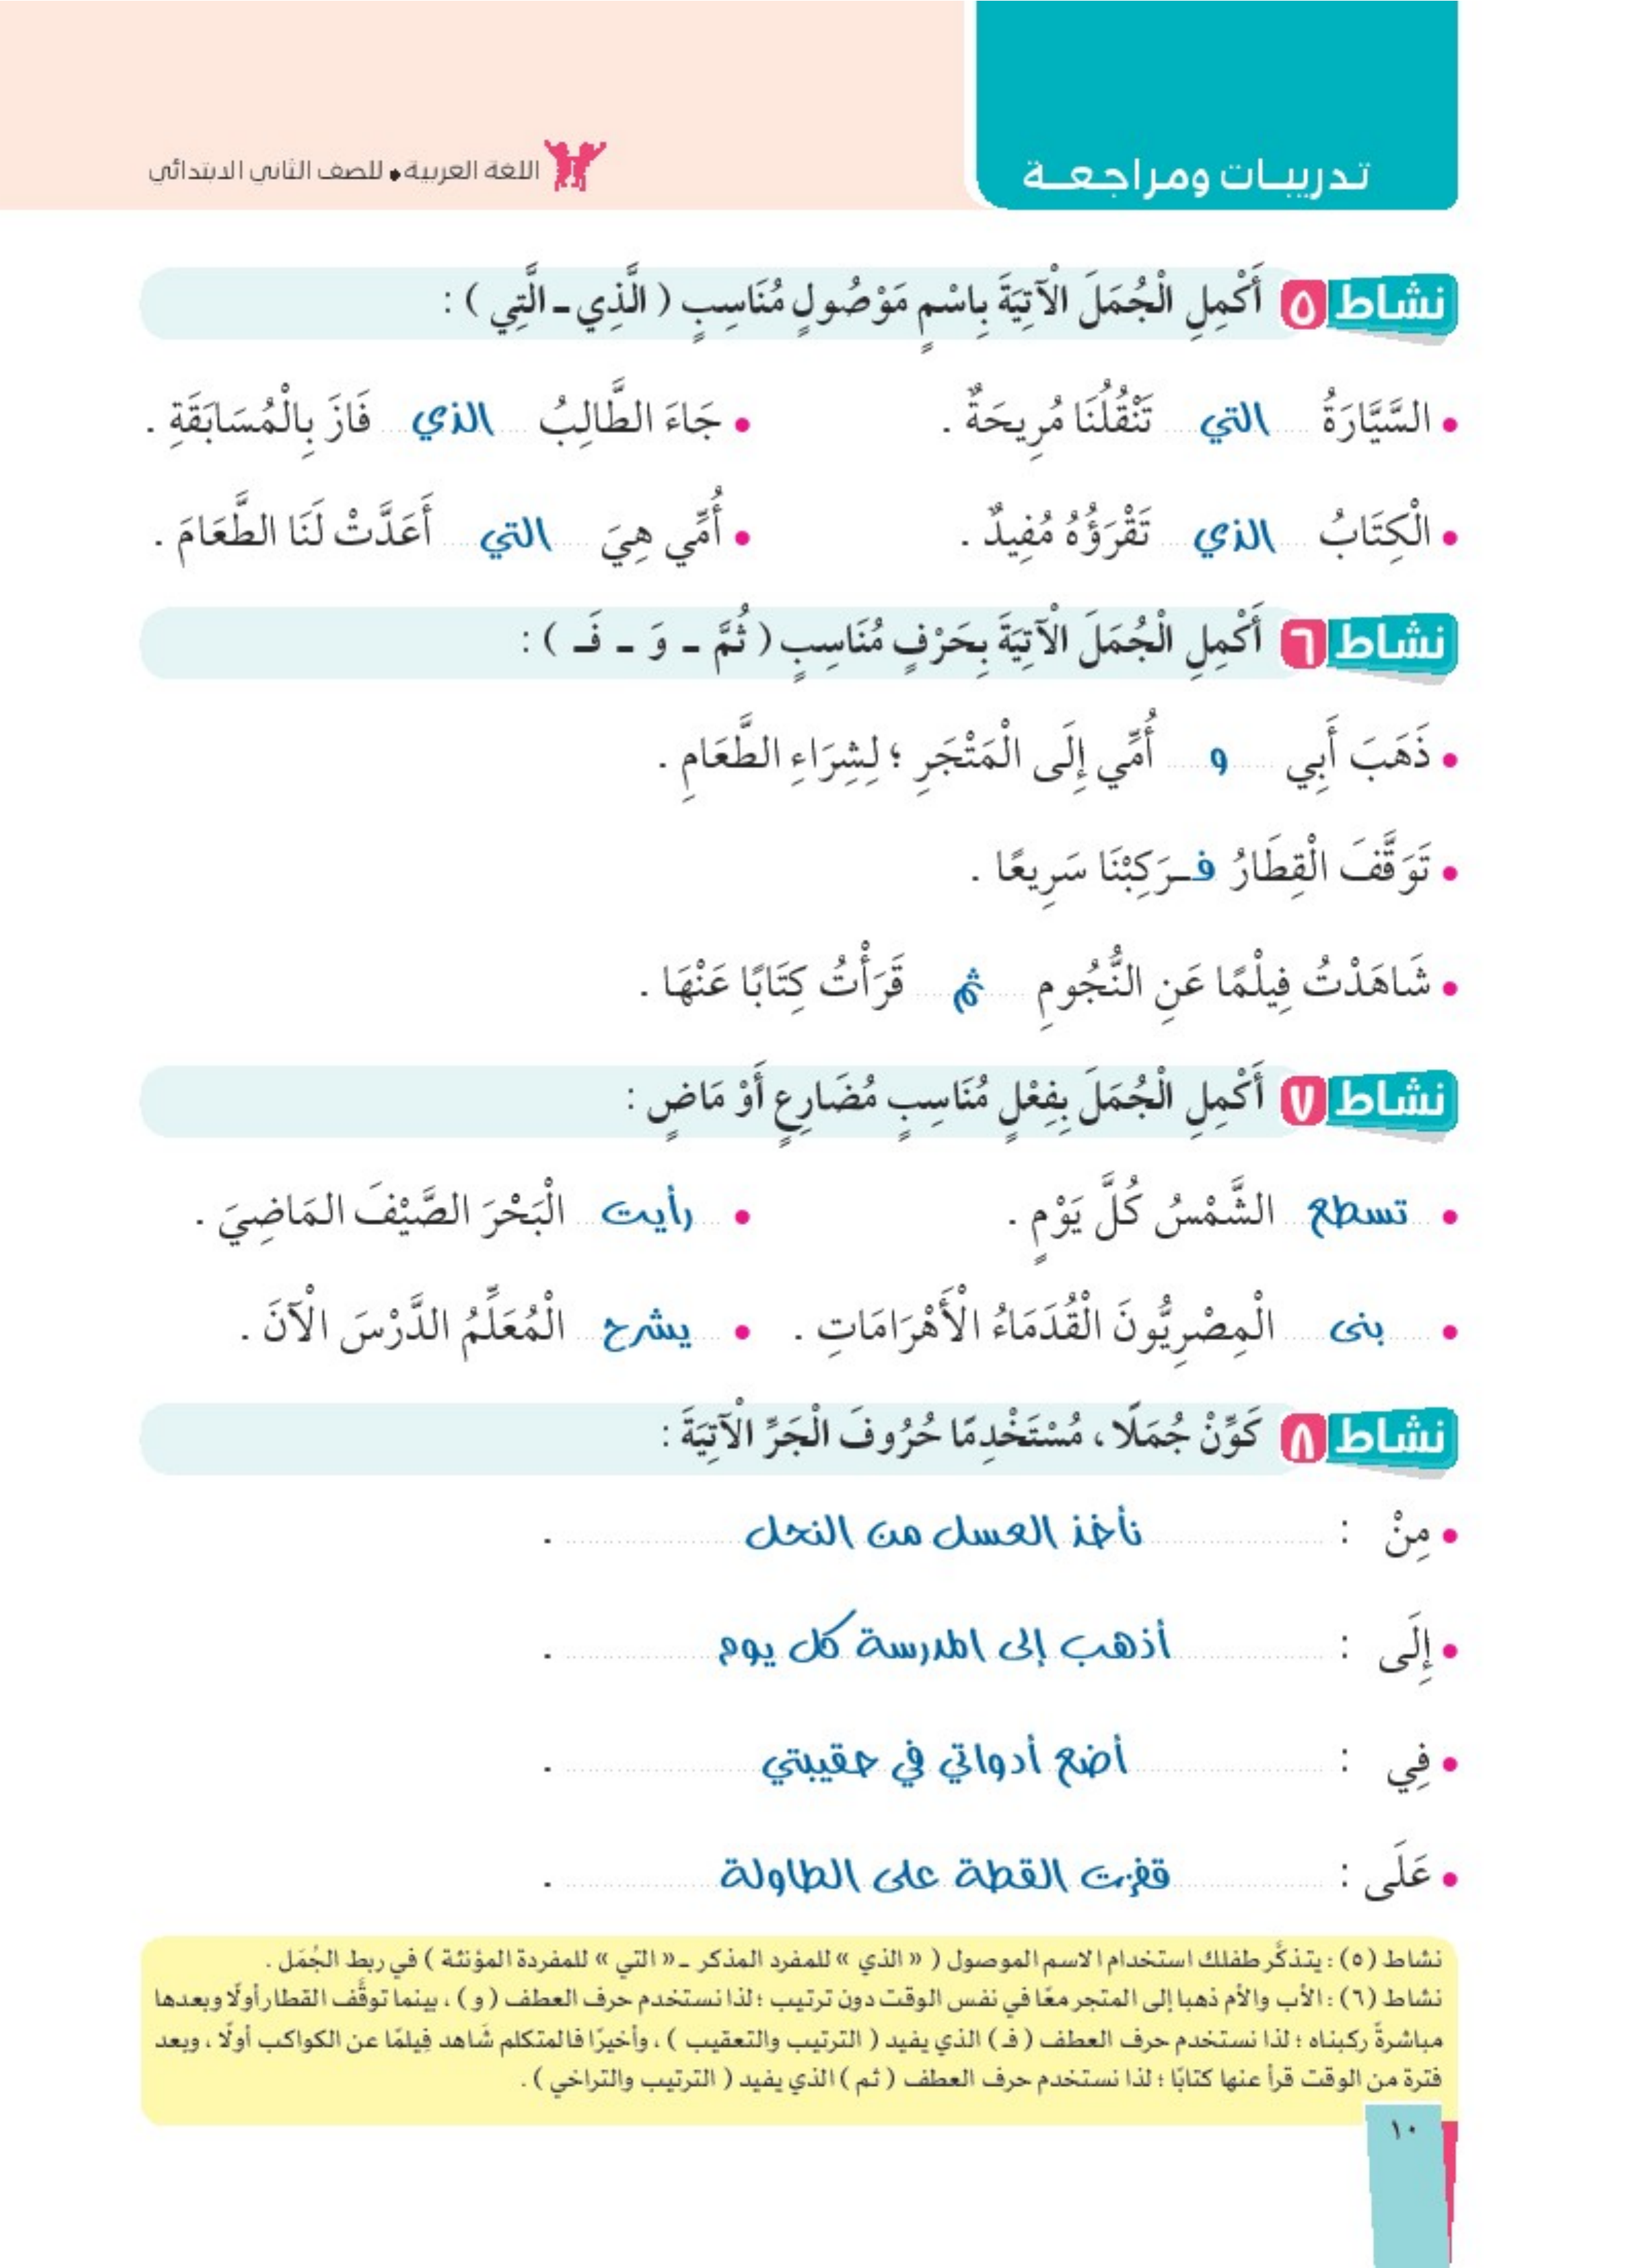 تدريبات ومراجعة
اللغة العربية • للصف الثاني الابتدائي
نشاط ٥ أَكْمِلِ الْجُمَلَ الْآتِيَةَ بِاسْمٍ مَوْصُولٍ مُنَاسِبٍ ( الَّذِي - الَّتِي ) :
• السَّيَّارَةُ التي تَنْقُلُنَا مُرِيحَةٌ . • جَاءَ الطَّالِبُ الذي فَازَ بِالْمُسَابَقَةِ .
• الْكِتَابُ الذي تَقْرَؤُهُ مُفِيدٌ . • أُمِّي هِيَ التي أَعَدَّتْ لَنَا الطَّعَامَ .
نشاط ٦ أَكْمِلِ الْجُمَلَ الْآتِيَةَ بِحَرْفٍ مُنَاسِبٍ ( ثُمَّ - وَ - فَـ ) :
• ذَهَبَ أَبِي و أُمِّي إِلَى الْمَتْجَرِ ؛ لِشِرَاءِ الطَّعَامِ .
• تَوَقَّفَ الْقِطَارُ فـرَكِبْنَا سَرِيعًا .
• شَاهَدْتُ فِيلْمًا عَنِ النُّجُومِ ثم قَرَأْتُ كِتَابًا عَنْهَا .
نشاط ٧ أَكْمِلِ الْجُمَلَ بِفِعْلٍ مُنَاسِبٍ مُضَارِعٍ أَوْ مَاضٍ :
• تسطع الشَّمْسُ كُلَّ يَوْمٍ . • رأيت الْبَحْرَ الصَّيْفَ المَاضِيَ .
• بنى الْمِصْرِيُّونَ الْقُدَمَاءُ الْأَهْرَامَاتِ . • يشرح الْمُعَلِّمُ الدَّرْسَ الْآنَ .
نشاط ٨ كَوِّنْ جُمَلًا ، مُسْتَخْدِمًا حُرُوفَ الْجَرِّ الْآتِيَةَ :
• مِنْ : نأخذ العسل من النحل .
• إِلَى : أذهب إلى المدرسة كل يوم .
• فِي : أضع أدواتي في حقيبتي .
• عَلَى : قفزت القطة على الطاولة .
نشاط (٥) : يتذكَّر طفلك استخدام الاسم الموصول ( « الذي » للمفرد المذكر - « التي » للمفردة المؤنثة ) في ربط الجُمَل .
نشاط (٦) : الأب والأم ذهبا إلى المتجر معًا في نفس الوقت دون ترتيب ؛ لذا نستخدم حرف العطف ( و ) ، بينما توقَّف القطار أولًا وبعدها
مباشرةً ركبناه ؛ لذا نستخدم حرف العطف ( فـ ) الذي يفيد ( الترتيب والتعقيب ) ، وأخيرًا فالمتكلم شَاهد فِيلمًا عن الكواكب أولًا ، وبعد
فترة من الوقت قرأ عنها كتابًا ؛ لذا نستخدم حرف العطف ( ثم ) الذي يفيد ( الترتيب والتراخي ) .
١٠